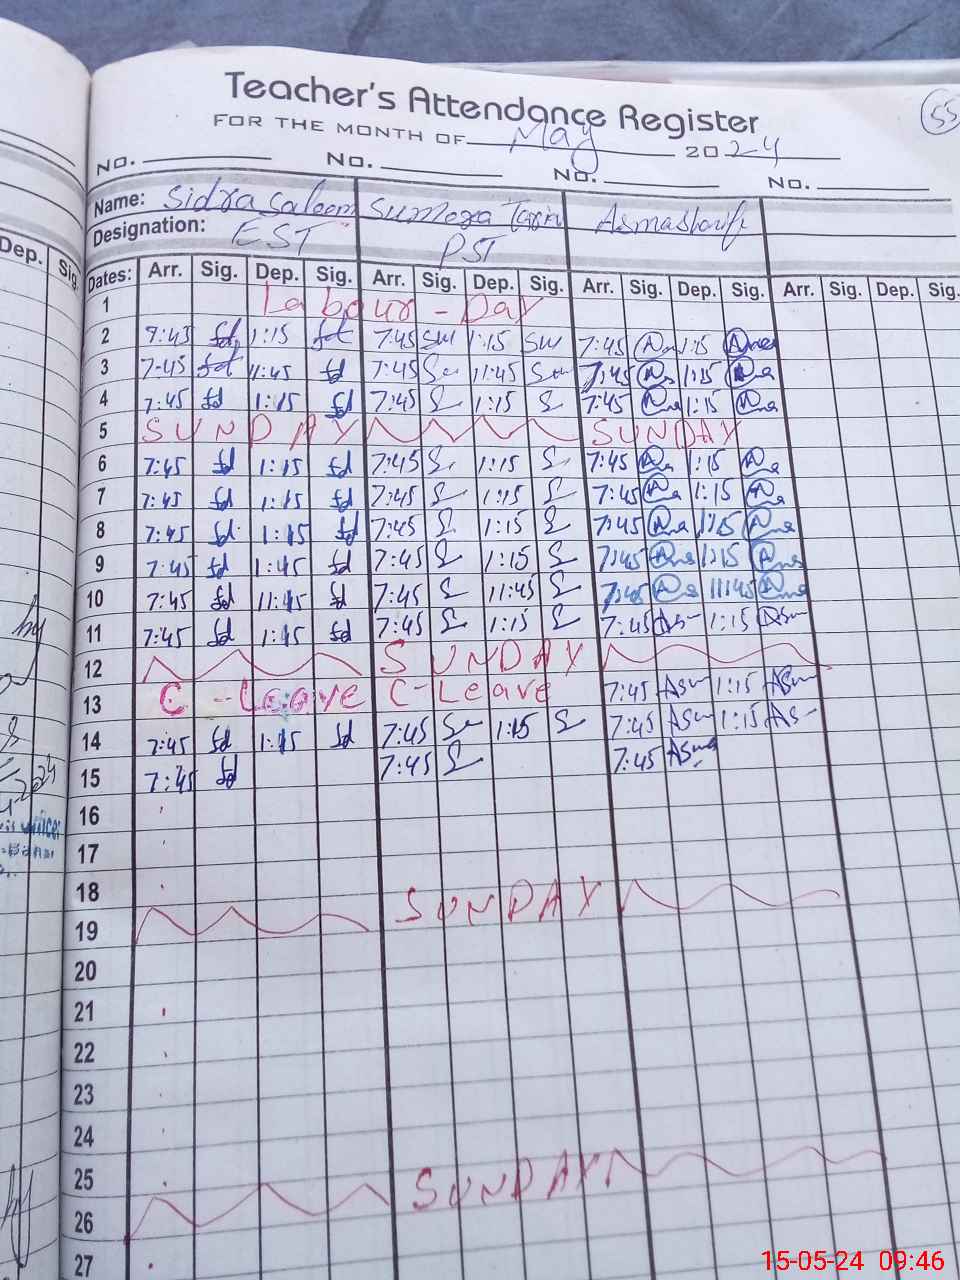 Teacher's Attendance Register
55
FOR THE MONTH OF May 2024
NO. NO. NO. NO.
Name: Sidra Saleem Sumera Asma Sharif
Designation: EST PST
Dep. Sig.
Dates: Arr. Sig. Dep. Sig. Arr. Sig. Dep. Sig. Arr. Sig. Dep. Sig. Arr. Sig. Dep. Sig.
1 Labour - Day
2 7:45 1:15 7:45 SW 1:15 SW 7:45 1:15
3 7-45 11:45 7:45 11:45 7:45 1:15
4 7:45 1:15 7:45 1:15 7:45 1:15
5 SUNDAY SUNDAY
6 7:45 1:15 7:45 1:15 7:45 1:15
7 7:45 1:15 7:45 1:15 7:45 1:15
8 7:45 1:15 7:45 1:15 7:45 1:15
9 7:45 1:45 7:45 1:15 7:45 1:15
10 7:45 11:45 7:45 11:45 7:45 11:45
11 7:45 1:45 7:45 1:15 7:45 Asm 1:15 Asm
12 SUNDAY
13 C-Leave C-Leave 7:45 Asm 1:15 Asm
14 7:45 1:15 7:45 1:15 7:45 Asm 1:15 As
15 7:45 7:45 7:45 Asma
16
17
18
19 SUNDAY
20
21
22
23
24
25
26 SUNDAY
27
15-05-24 09:46